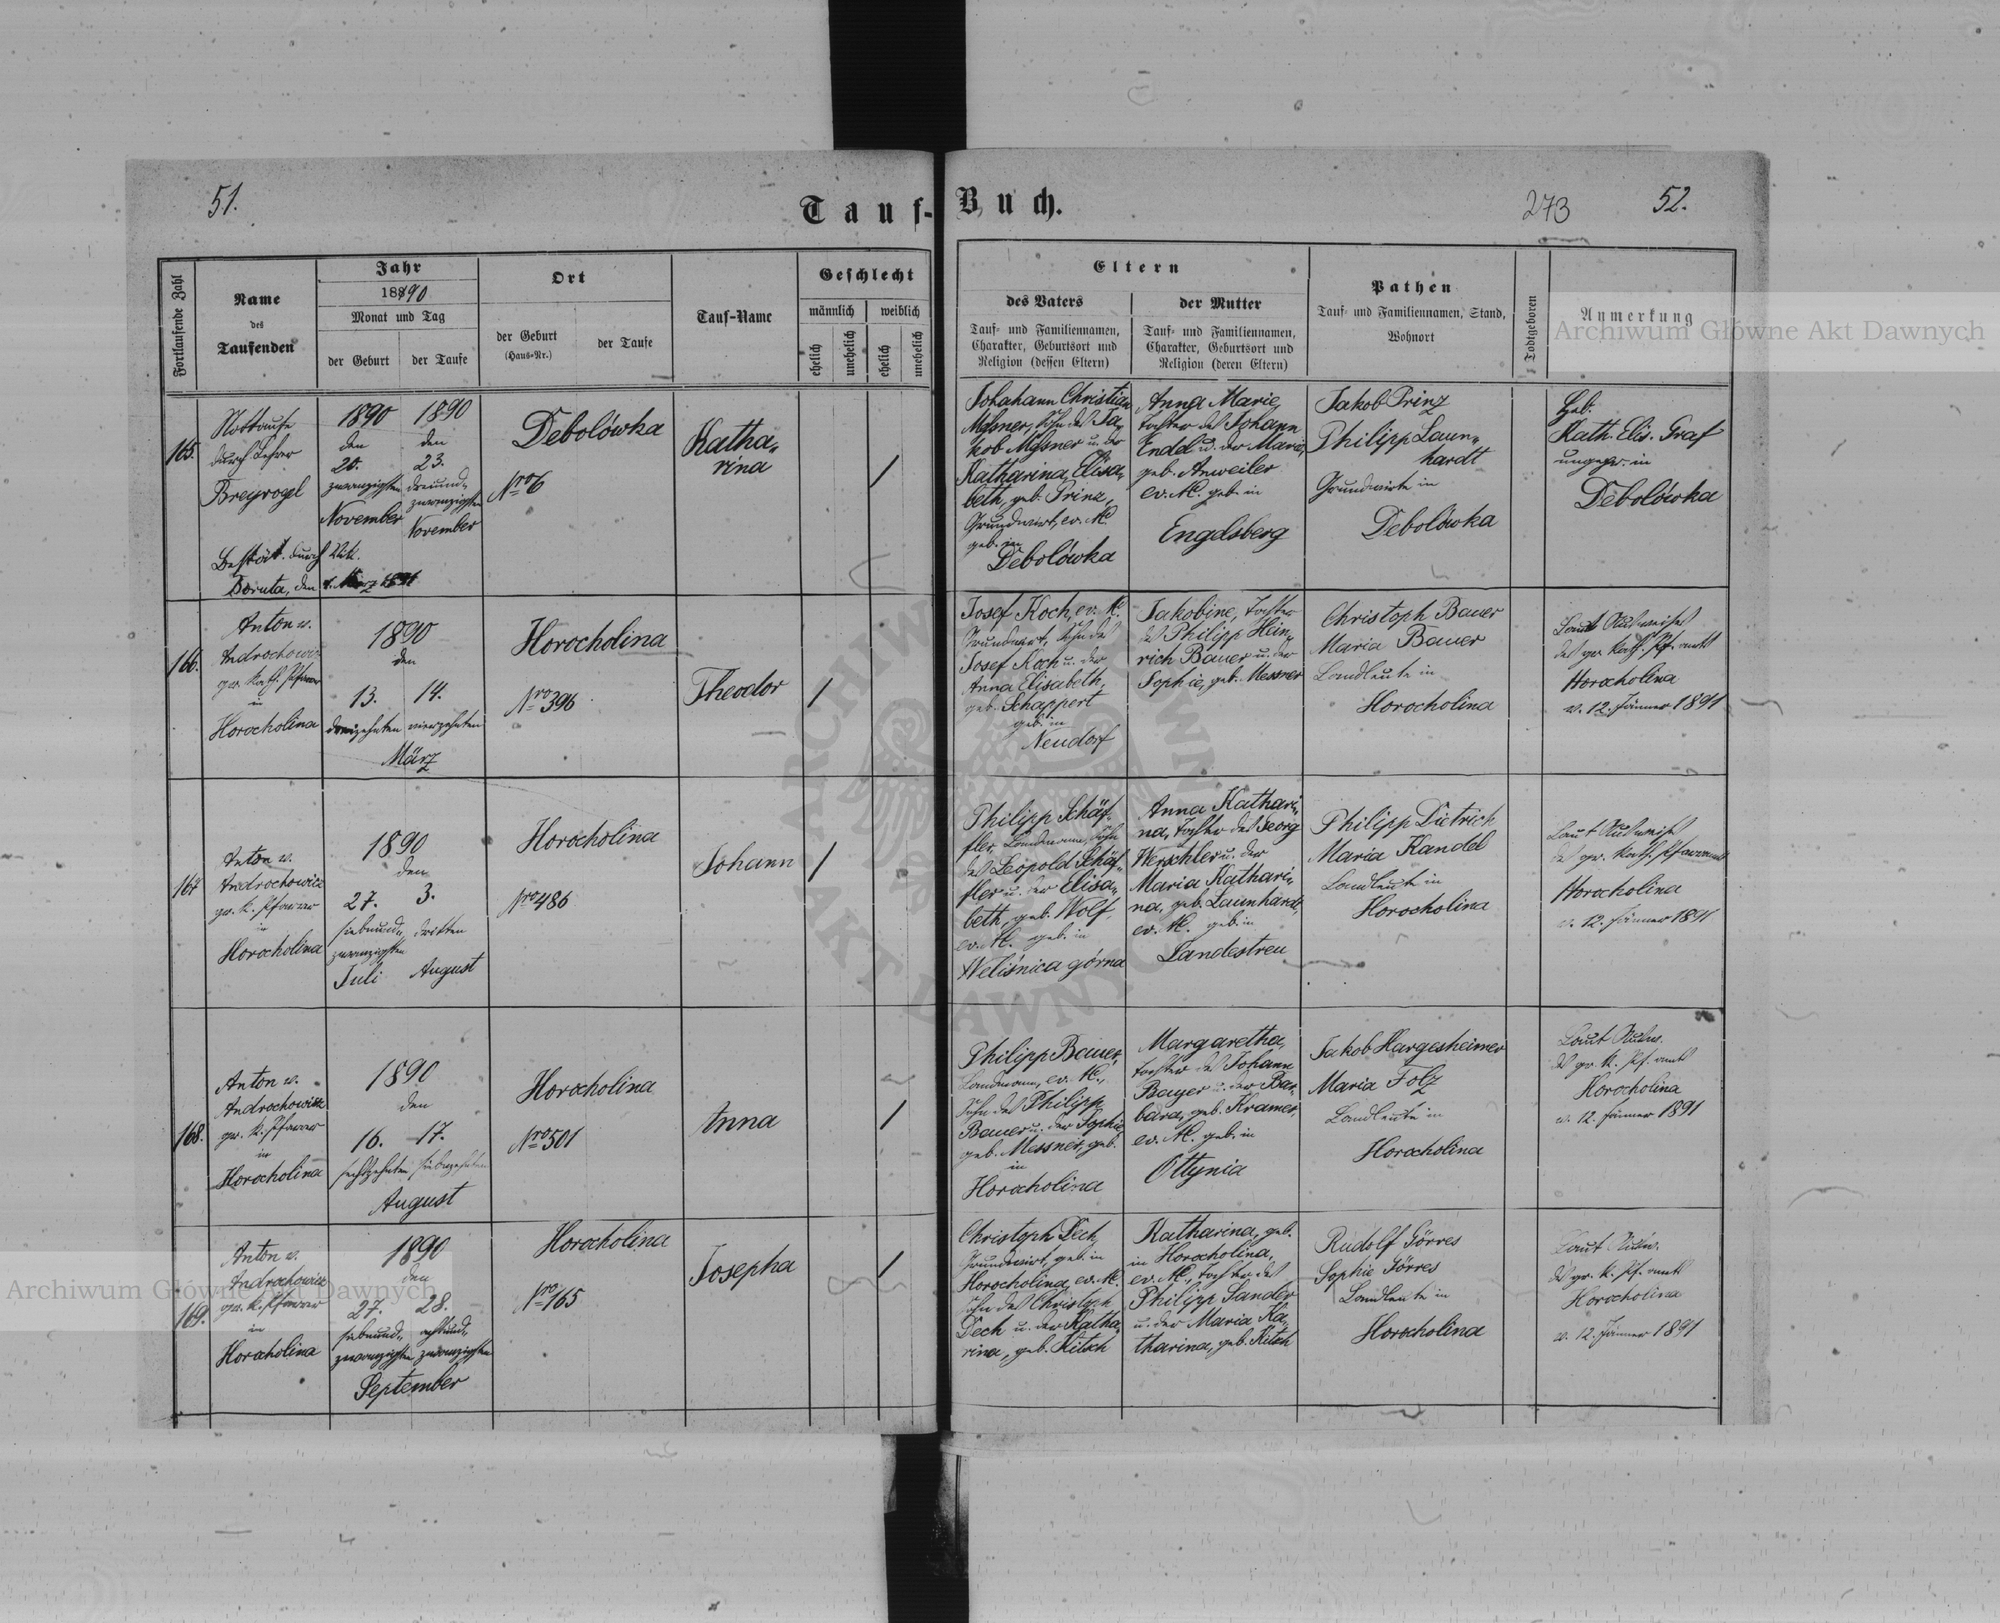 51.
Tauf-Buch.
273
52.
Fortlaufende Zahl
Name
des
Taufenden
Jahr
1890
Monat und Tag
der Geburt
der Taufe
Ort
der Geburt
(Haus-Nr.)
der Taufe
Tauf-Name
Geschlecht
männlich
weiblich
ehelich
unehelich
ehelich
unehelich
Eltern
des Vaters
Tauf- und Familiennamen,
Charakter, Geburtsort und
Religion (dessen Eltern)
der Mutter
Tauf- und Familiennamen,
Charakter, Geburtsort und
Religion (deren Eltern)
Pathen
Tauf- und Familiennamen, Stand,
Wohnort
Todtgeboren
Anmerkung
165.
Nottaufe
durch Lehrer
Breyvogel
Bestät. durch Vik.
Boruta, den 1. März 1891
1890
den
20.
zwanzigsten
November
1890
den
23.
dreiund-
zwanzigsten
November
Debolówka
Nro 6
Katha-
rina
/
Johahann Christian
Messner, Sohn des Ja-
kob Messner u. der
Katharina Elisa-
beth, geb. Prinz,
Grundwirt, ev. AC.
geb. in
Debolówka
Anna Marie,
Tochter des Johann
Endel u. der Marie,
geb. Anweiler
ev. AC. geb. in
Engelsberg
Jakob Prinz
Philipp Laun-
hardt
Grundwirte in
Debolówka
Heb.
Kath. Elis. Graf
ungepr. in
Debolówka
166.
Anton v.
Androchowicz
gr. kath. Pfarrer
in
Horocholina
1890
den
13. 14.
dreizehnten vierzehnten
März
Horocholina
Nro 396
Theodor
/
Josef Koch, ev. AC.
Grundwirt, Sohn des
Josef Koch u. der
Anna Elisabeth,
geb. Schappert
geb. in
Neudorf
Jakobine, Tochter
des Philipp Hein-
rich Bauer u. der
Sophie, geb. Messner
Christoph Bauer
Maria Bauer
Landleute in
Horocholina
Laut Ausweises
des gr. kath. Pf. amts
Horocholina
v. 12. Jänner 1891
167.
Anton v.
Androchowicz
gr. k. Pfarrer
in
Horocholina
1890
den
27. 3.
siebenund- dritten
zwanzigsten
Juli August
Horocholina
Nro 486
Johann
/
Philipp Schäf-
fler, Landmann, Sohn
des Leopold Schäf-
fler u. der Elisa-
beth, geb. Wolf
ev. AC. geb. in
Weliśnica górna
Anna Kathari-
na, Tochter des Georg
Werschler u. der
Maria Kathari-
na, geb. Launhardt,
ev. AC. geb. in
Landestreu
Philipp Dietrich
Maria Kandel
Landleute in
Horocholina
Laut Ausweises
des gr. kath. Pfarramts
Horocholina
v. 12. Jänner 1891
168.
Anton v.
Androchowicz
gr. k. Pfarrer
in
Horocholina
1890
den
16. 17.
sechzehnten siebzehnten
August
Horocholina
Nro 501
Anna
/
Philipp Bauer,
Landmann, ev. AC.,
Sohn des Philipp
Bauer u. der Sophie,
geb. Messner, geb.
in
Horocholina
Margaretha,
Tochter des Johann
Bayer u. der Bar-
bara, geb. Kramer,
ev. AC. geb. in
Ottynia
Jakob Hargesheimer
Maria Folz
Landleute in
Horocholina
Laut Ausw.
des gr. k. Pf. amts
Horocholina
v. 12. Jänner 1891
169.
Anton v.
Androchowicz
gr. k. Pfarrer
in
Horocholina
1890
den
27. 28.
siebenund- achtund-
zwanzigsten zwanzigsten
September
Horocholina
Nro 165
Josepha
/
Christoph Dech,
Grundwirt, geb. in
Horocholina, ev. AC.
Sohn des Christoph
Dech u. der Katha-
rina, geb. Kitsch
Katharina, geb.
in Horocholina,
ev. AC., Tochter des
Philipp Sander
u. der Maria Ka-
tharina, geb. Kitsch
Rudolf Görres
Sophie Görres
Landleute in
Horocholina
Laut Ausw.
des gr. k. Pf. amts
Horocholina
v. 12. Jänner 1891
Archiwum Główne Akt Dawnych
Archiwum Główne Akt Dawnych